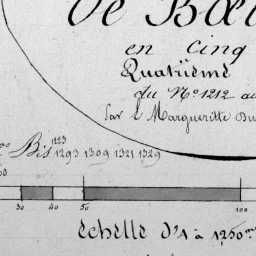 de Bœu
en Cinq
Quatrïeme
du N° 1212 au
Par l. Margueritte Du
Bis 1223
1293 1309 1321 1329
30 40 50 100
échelle d'1 à 1250